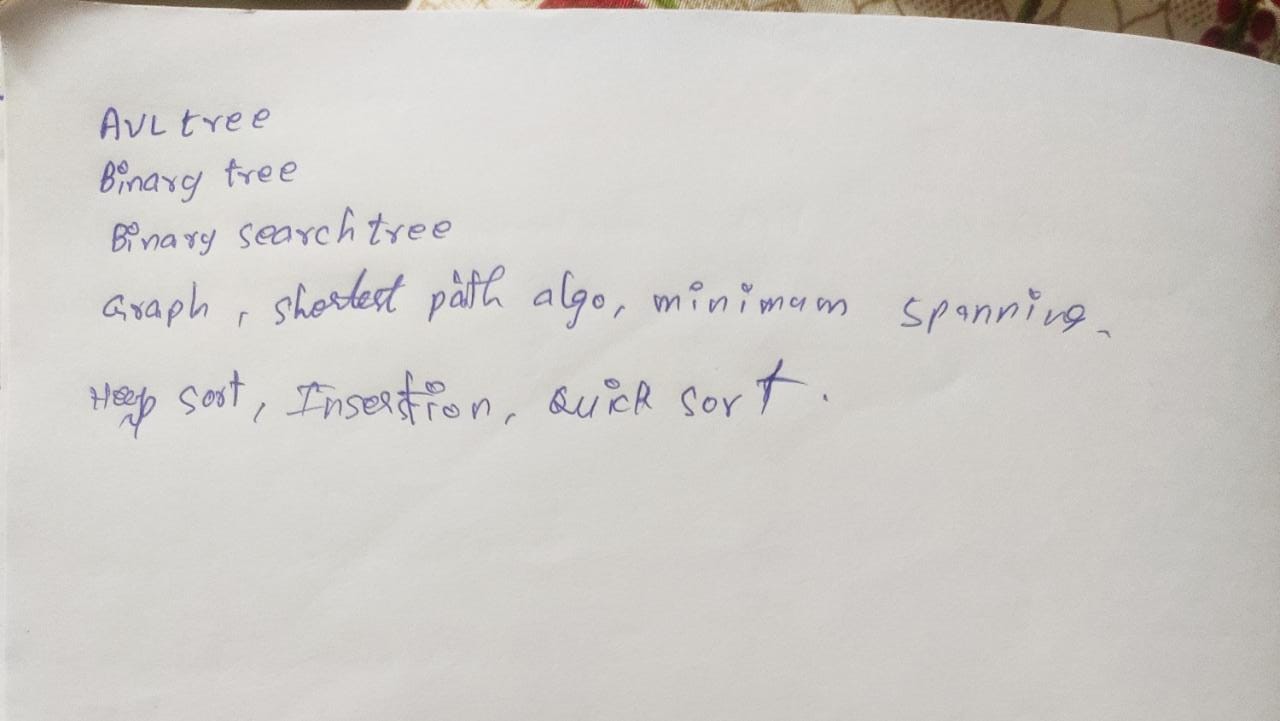 AVL tree
Binary tree
Binary search tree
Graph, shortest path algo, minimum spanning
Heep sort, Insertion, Quick sort.